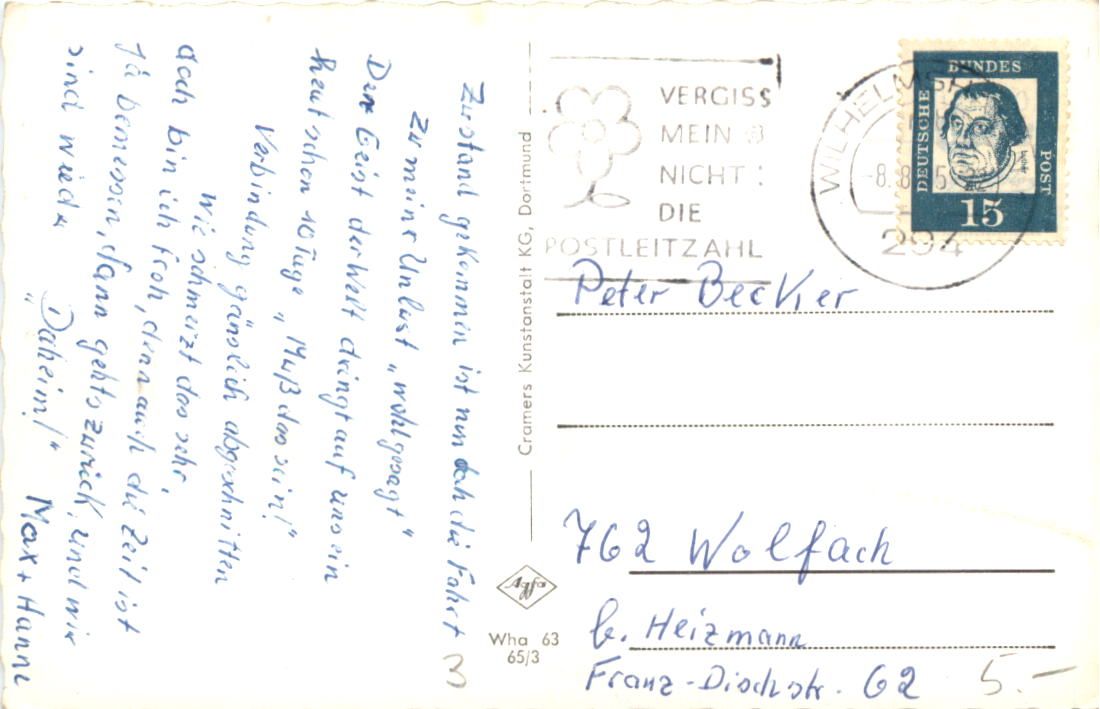 Zustand gekommen ist nun doch die Fahrt
zu meiner Unlust „wohlgesagt"
Der Geist der Welt dringt auf uns ein
heut schon 10 Tage „Muß das sein!"
Verbindung gänslich abgeschnitten
wie schmerzt das sehr,
doch bin ich froh, denn auch die Zeit ist
ja bemessen, dann gehts zurück, und wir
sind wieder „Daheim!"
Max + Hanne
Cramers Kunstanstalt KG, Dortmund
Agfa
Wha 63
65/3
3
VERGISS
MEIN
NICHT
DIE
POSTLEITZAHL
WILHELMSH
-8.8.
294
DEUTSCHE BUNDES POST
15
Peter Becker
762 Wolfach
b. Heizmann
Franz-Dischstr. 62
5.-